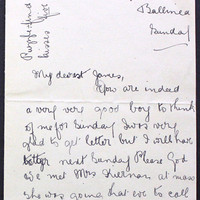 Ballinea
Sunday
My dearest James,
You are indeed
a very very good boy to think
of me for Sunday I was very
glad to get letter but I will have
better next Sunday Please God
we met Mrs Kiernan at mass
she was going that eve to call